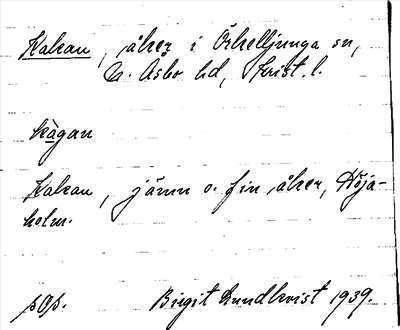 Kakan, åker i Örkelljunga sn,
N. Åsbo hd, Krist. l.
kågan
Kakan, jämn o. fin åker, Höja-
holm.
pOp. Birgit Lundkvist 1939.